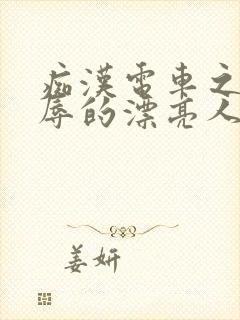 痴漢電車之
辱的漂亮人
姜妍